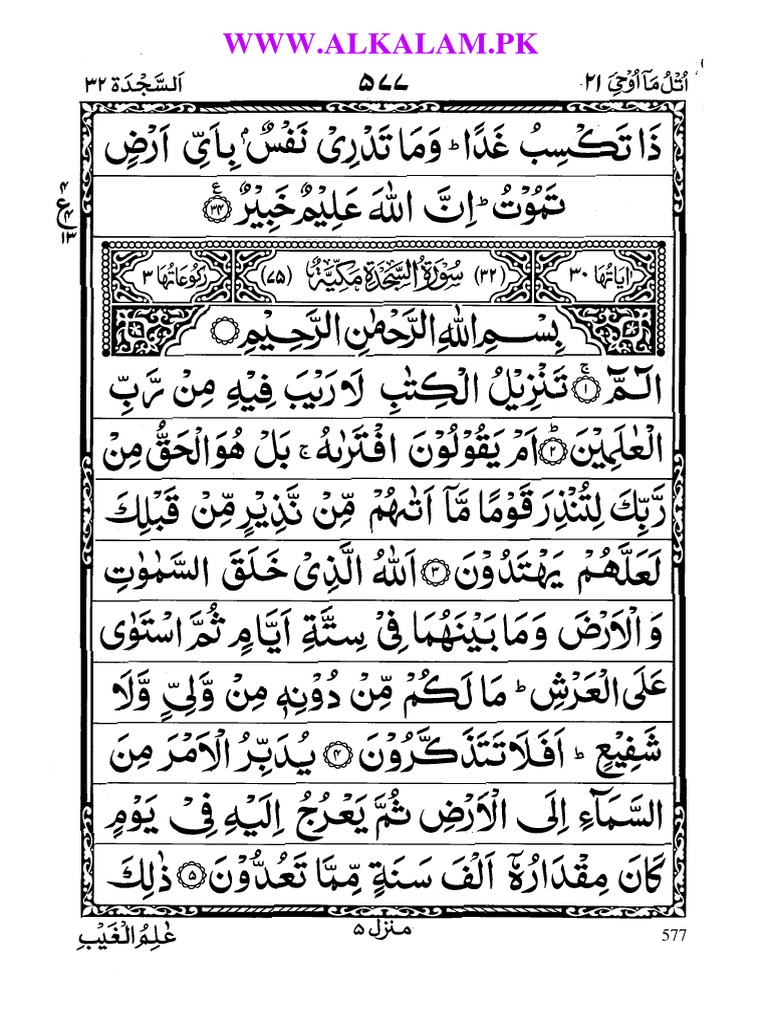 WWW.ALKALAM.PK
اُتْلُ مَآ اُوْحِیَ ۲۱
۵۷۷
اَلسَّجْدَة ۳۲
ذَا تَكْسِبُ غَدًا ؕ وَمَا تَدْرِیْ نَفْسٌۢ بِاَیِّ اَرْضٍ
تَمُوْتُ ؕ اِنَّ اللّٰهَ عَلِیْمٌ خَبِیْرٌ ﴿۳۴﴾
۴
ع
۴
۱۳
اٰیَاتُهَا ۳۰
(۳۲) سُوْرَةُ السَّجْدَةِ مَكِّیَّةٌ (۷۵)
رُكُوْعَاتُهَا ۳
بِسْمِ اللّٰهِ الرَّحْمٰنِ الرَّحِیْمِ
الٓمّٓ ۚ﴿۱﴾ تَنْزِیْلُ الْكِتٰبِ لَا رَیْبَ فِیْهِ مِنْ رَّبِّ
الْعٰلَمِیْنَ ؕ﴿۲﴾ اَمْ یَقُوْلُوْنَ افْتَرٰىهُ ۚ بَلْ هُوَ الْحَقُّ مِنْ
رَّبِّكَ لِتُنْذِرَ قَوْمًا مَّاۤ اَتٰىهُمْ مِّنْ نَّذِیْرٍ مِّنْ قَبْلِكَ
لَعَلَّهُمْ یَهْتَدُوْنَ ﴿۳﴾ اَللّٰهُ الَّذِیْ خَلَقَ السَّمٰوٰتِ
وَ الْاَرْضَ وَمَا بَیْنَهُمَا فِیْ سِتَّةِ اَیَّامٍ ثُمَّ اسْتَوٰی
عَلَی الْعَرْشِ ؕ مَا لَكُمْ مِّنْ دُوْنِهٖ مِنْ وَّلِیٍّ وَّلَا
شَفِیْعٍ ؕ اَفَلَا تَتَذَكَّرُوْنَ ﴿۴﴾ یُدَبِّرُ الْاَمْرَ مِنَ
السَّمَآءِ اِلَی الْاَرْضِ ثُمَّ یَعْرُجُ اِلَیْهِ فِیْ یَوْمٍ
كَانَ مِقْدَارُهٗۤ اَلْفَ سَنَةٍ مِّمَّا تَعُدُّوْنَ ﴿۵﴾ ذٰلِكَ
577
منزل ۵
عٰلِمُ الْغَیْبِ